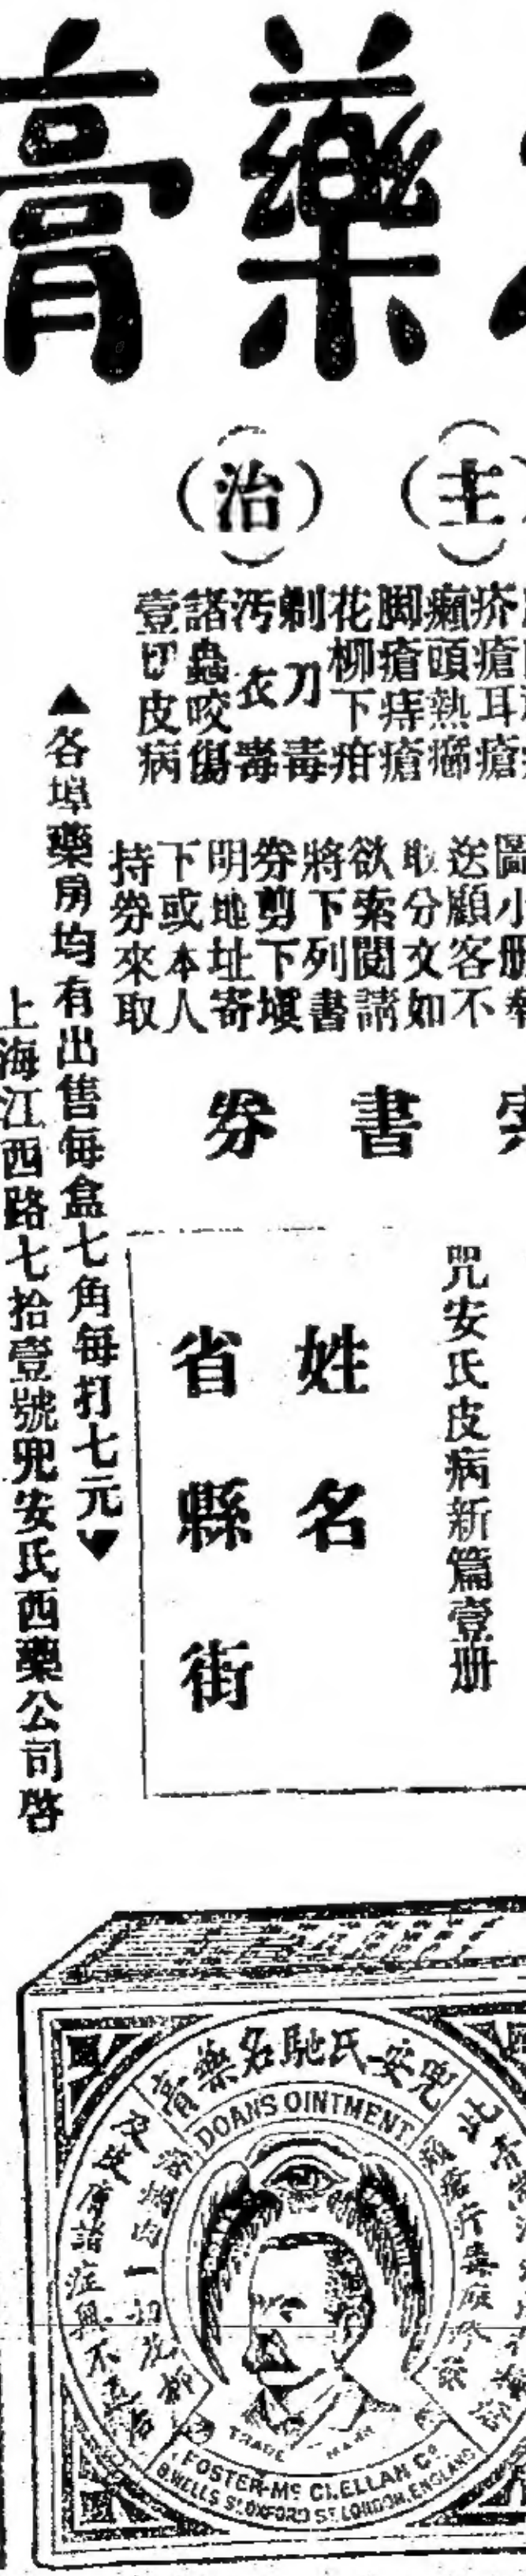 藥膏
主治
疥瘡耳瘡
癩頭熱癤
脚瘡痔瘡
花柳下疳
剃刀毒
汚衣毒
諸蟲咬傷
壹切皮病
送顧客不
取分文如
欲索閱請
將下列書
券剪下塡
明地址寄
下或本人
持券來取
書券
兜安氏皮病新篇壹册
姓名
省縣街
▲各埠藥房均有出售每盒七角每打七元▼
上海江西路七拾壹號兜安氏西藥公司啓
兜安氏馳名藥膏
DOANS OINTMENT
TRADE MARK
FOSTER-MCCLELLAN CO
8.WELLS ST.OXFORD ST.LONDON.ENGLAND